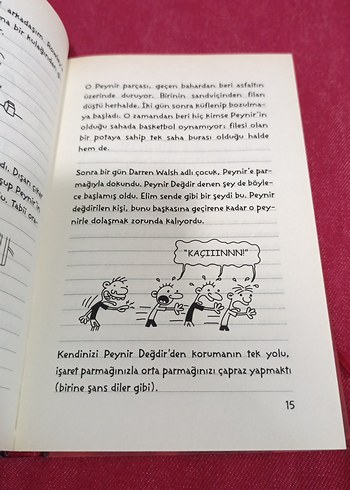 arkadaşım
na bir kulağından
O Peynir parçası, geçen bahardan beri asfaltın
üzerinde duruyor. Birinin sandviçinden filan
düştü herhalde. İki gün sonra küflenip bozulma-
ya başladı. O zamandan beri hiç kimse Peynir'in
olduğu sahada basketbol oynamıyor; filesi olan
bir potaya sahip tek saha burası olduğu halde
hem de.
Sonra bir gün Darren Walsh adlı çocuk, Peynir'e par-
mağıyla dokundu. Peynir Değdir denen şey de böyle-
ce başlamış oldu. Elim sende gibi bir şeydi bu. Peynir
değdirilen kişi, bunu başkasına geçirene kadar o pey-
nirle dolaşmak zorunda kalıyordu.
"KAÇIIINNN!"
Kendinizi Peynir Değdir'den korumanın tek yolu,
işaret parmağınızla orta parmağınızı çapraz yapmaktı
(birine şans diler gibi).
15